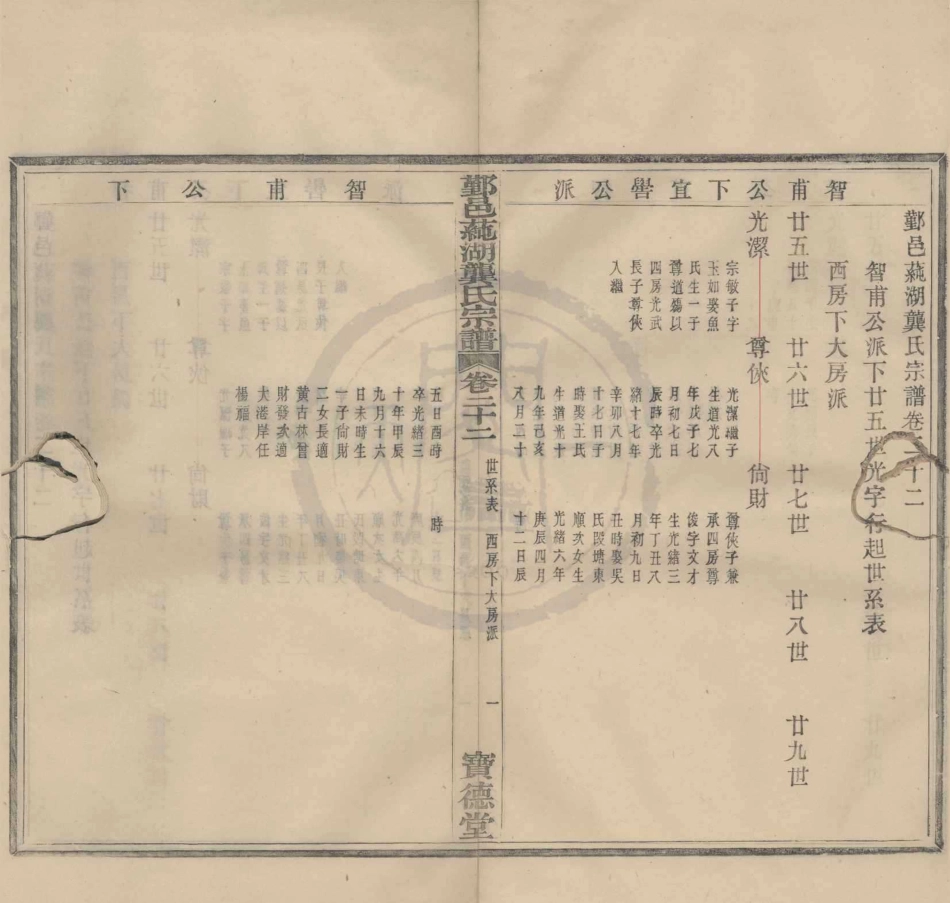 鄞邑蒓湖龔氏宗譜卷二十二
智甫公派下廿五世光字行起世系表
西房下大房派
智甫公下宜譽公派
廿五世
廿六世
廿七世
廿八世
廿九世
光潔
宗敏子字
玉如娶魚
氏生一子
尊道殤以
四房光武
長子尊俠
入繼
尊俠
光潔繼子
生道光八
年戊子七
月初七日
辰時卒光
緒十七年
辛卯八月
十七日子
時娶王氏
生道光十
九年己亥
八月二十
五日酉時
卒光緒三
十年甲辰
九月十六
日未時生
一子尙財
二女長適
黃古林曾
財發次適
大涵岸任
楊福
尙財
尊俠子兼
承四房尊
俊字文才
生光緒三
年丁丑八
月初九日
丑時娶吳
氏段塘東
順次女生
光緒六年
庚辰四月
十二日辰
時
鄞邑蒓湖龔氏宗譜
卷二十二
世系表
西房下大房派
一
寶德堂
智甫公下